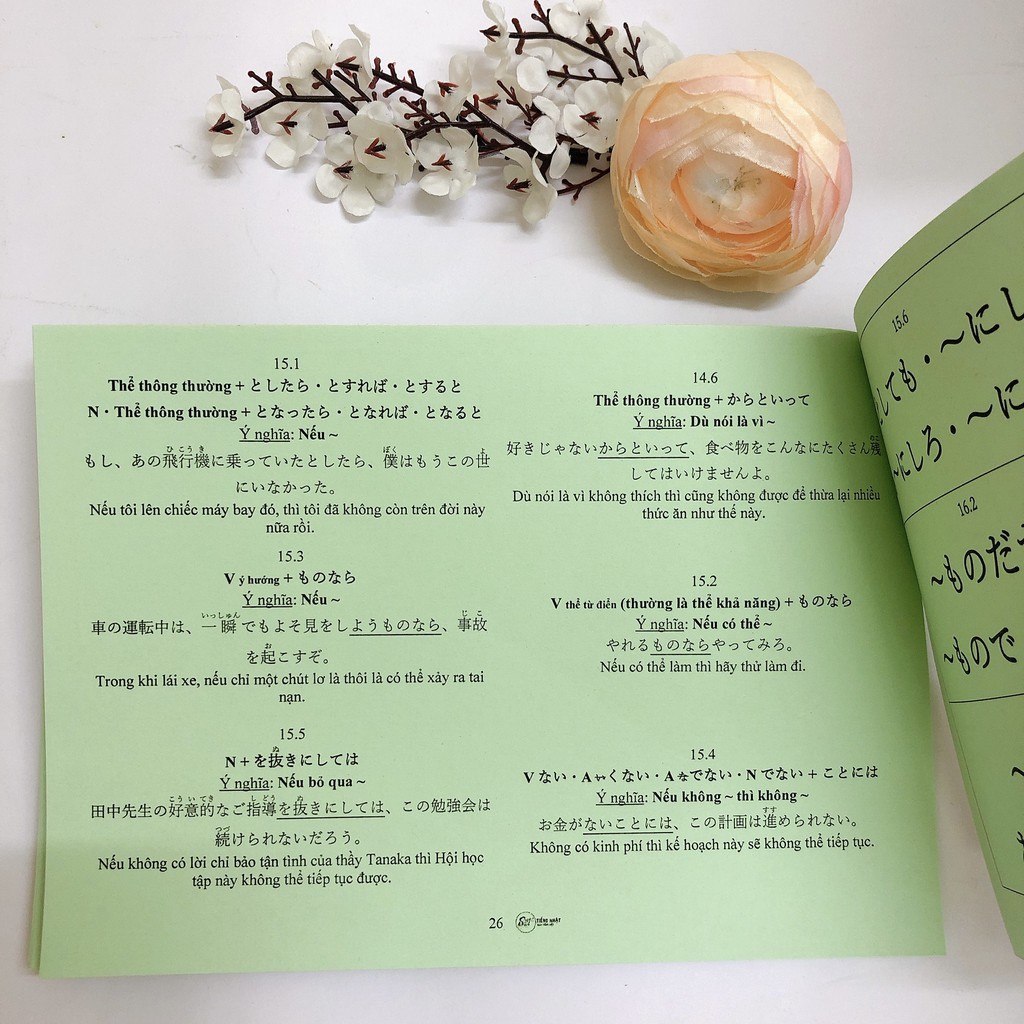 15.1
Thể thông thường + としたら・とすれば・とすると
N・Thể thông thường + となったら・となれば・となると
Ý nghĩa: Nếu ~
もし、あの飛行機に乗っていたとしたら、僕はもうこの世
にいなかった。
Nếu tôi lên chiếc máy bay đó, thì tôi đã không còn trên đời này
nữa rồi.
15.3
V ý hướng + ものなら
Ý nghĩa: Nếu ~
車の運転中は、一瞬でもよそ見をしようものなら、事故
を起こすぞ。
Trong khi lái xe, nếu chỉ một chút lơ là thôi là có thể xảy ra tai
nạn.
15.5
N + を抜きにしては
Ý nghĩa: Nếu bỏ qua ~
田中先生の好意的なご指導を抜きにしては、この勉強会は
続けられないだろう。
Nếu không có lời chỉ bảo tận tình của thầy Tanaka thì Hội học
tập này không thể tiếp tục được.
14.6
Thể thông thường + からといって
Ý nghĩa: Dù nói là vì ~
好きじゃないからといって、食べ物をこんなにたくさん残
してはいけませんよ。
Dù nói là vì không thích thì cũng không được để thừa lại nhiều
thức ăn như thế này.
15.2
V thể từ điển (thường là thể khả năng) + ものなら
Ý nghĩa: Nếu có thể ~
やれるものならやってみろ。
Nếu có thể làm thì hãy thử làm đi.
15.4
V ない・A いくない・A なでない・N でない + ことには
Ý nghĩa: Nếu không ~ thì không ~
お金がないことには、この計画は進められない。
Không có kinh phí thì kế hoạch này sẽ không thể tiếp tục.
26
TIẾNG NHẬT
15.6
しても・～にし
～にしろ・～に
16.2
～ものだ
～もので